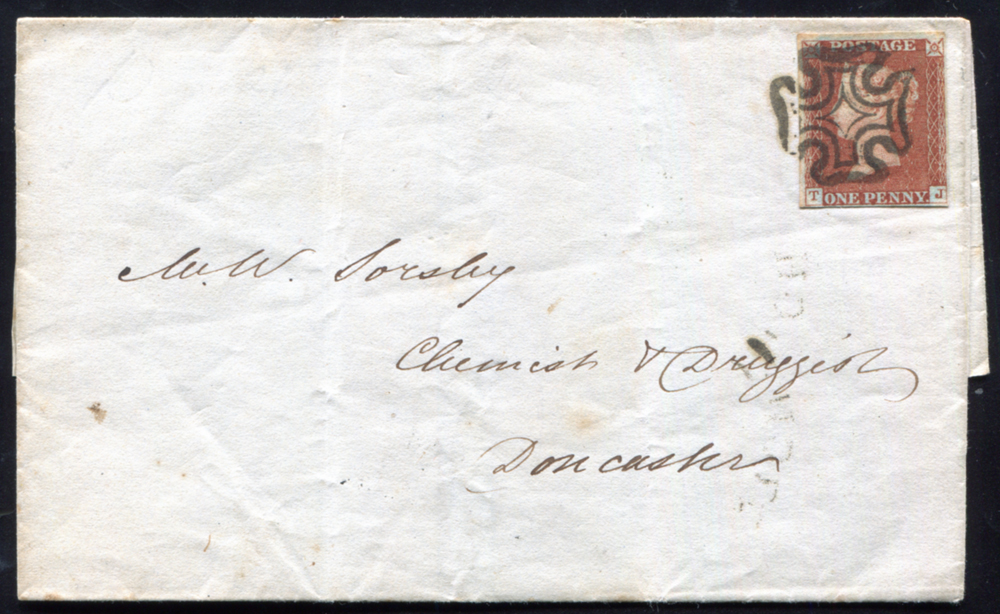 POSTAGE
T ONE PENNY. J
Mr. W. Sorsby
Chemist & Druggist
Doncaster